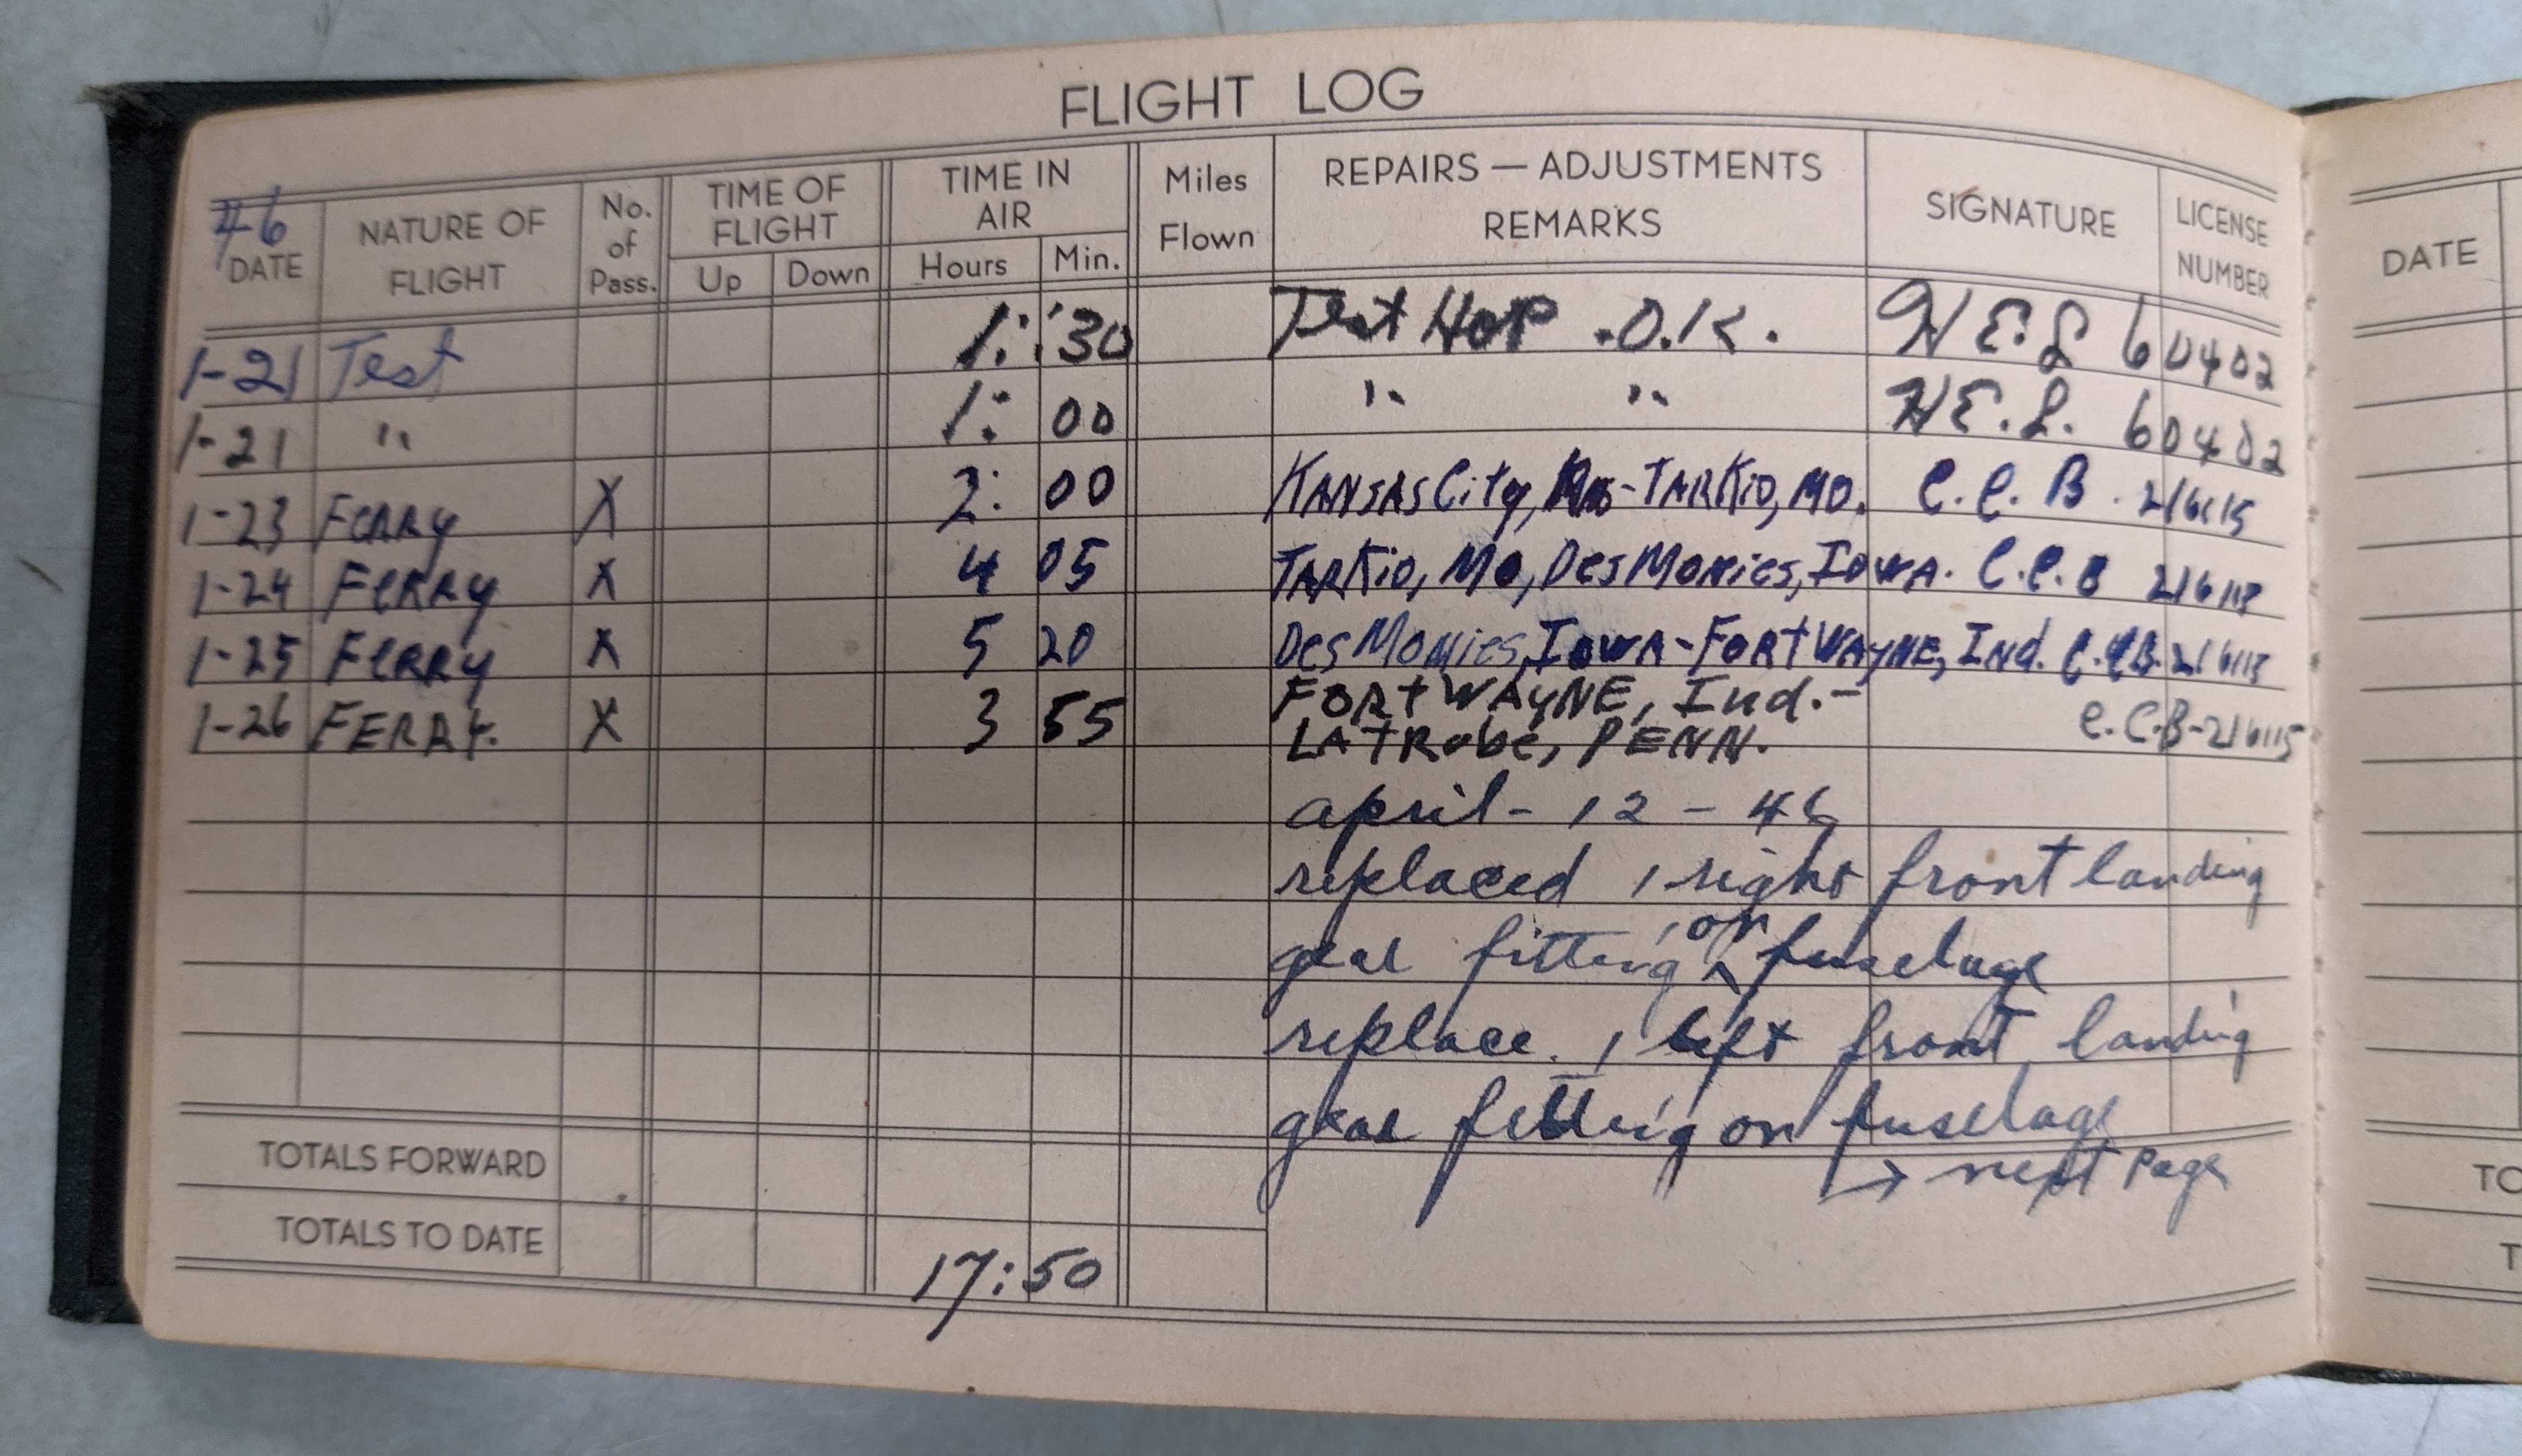 FLIGHT LOG
46
DATE NATURE OF FLIGHT No. of Pass. TIME OF FLIGHT Up Down TIME IN AIR Hours Min. Miles Flown REPAIRS — ADJUSTMENTS REMARKS SIGNATURE LICENSE NUMBER
1-21 Test 1: :30 Test HOP .O.K. H E.L 60402
1-21 " 1: 00 " " H E.L. 60402
1-23 FERRY X 2: 00 KANSAS City, Mo-TARKIO, MO. C.C. B. 216115
1-24 FERRY X 4 05 TARKIO, MO, Des Monies, IOWA. C.C.B 216115
1-25 FERRY X 5 20 Des Monies, IOWA-FORT WAYNE, Ind. C.C.B. 216115
1-26 FERRY. X 3 55 FORT WAYNE, Ind.-
LATRobe, PENN. C.C.B-216115
april - 12 - 46
replaced 1 right front landing
gear fitting on fuselage
replace. 1 left front landing
gear fitting on fuselage
→ next page
TOTALS FORWARD
TOTALS TO DATE 17:50
DATE
TO
T